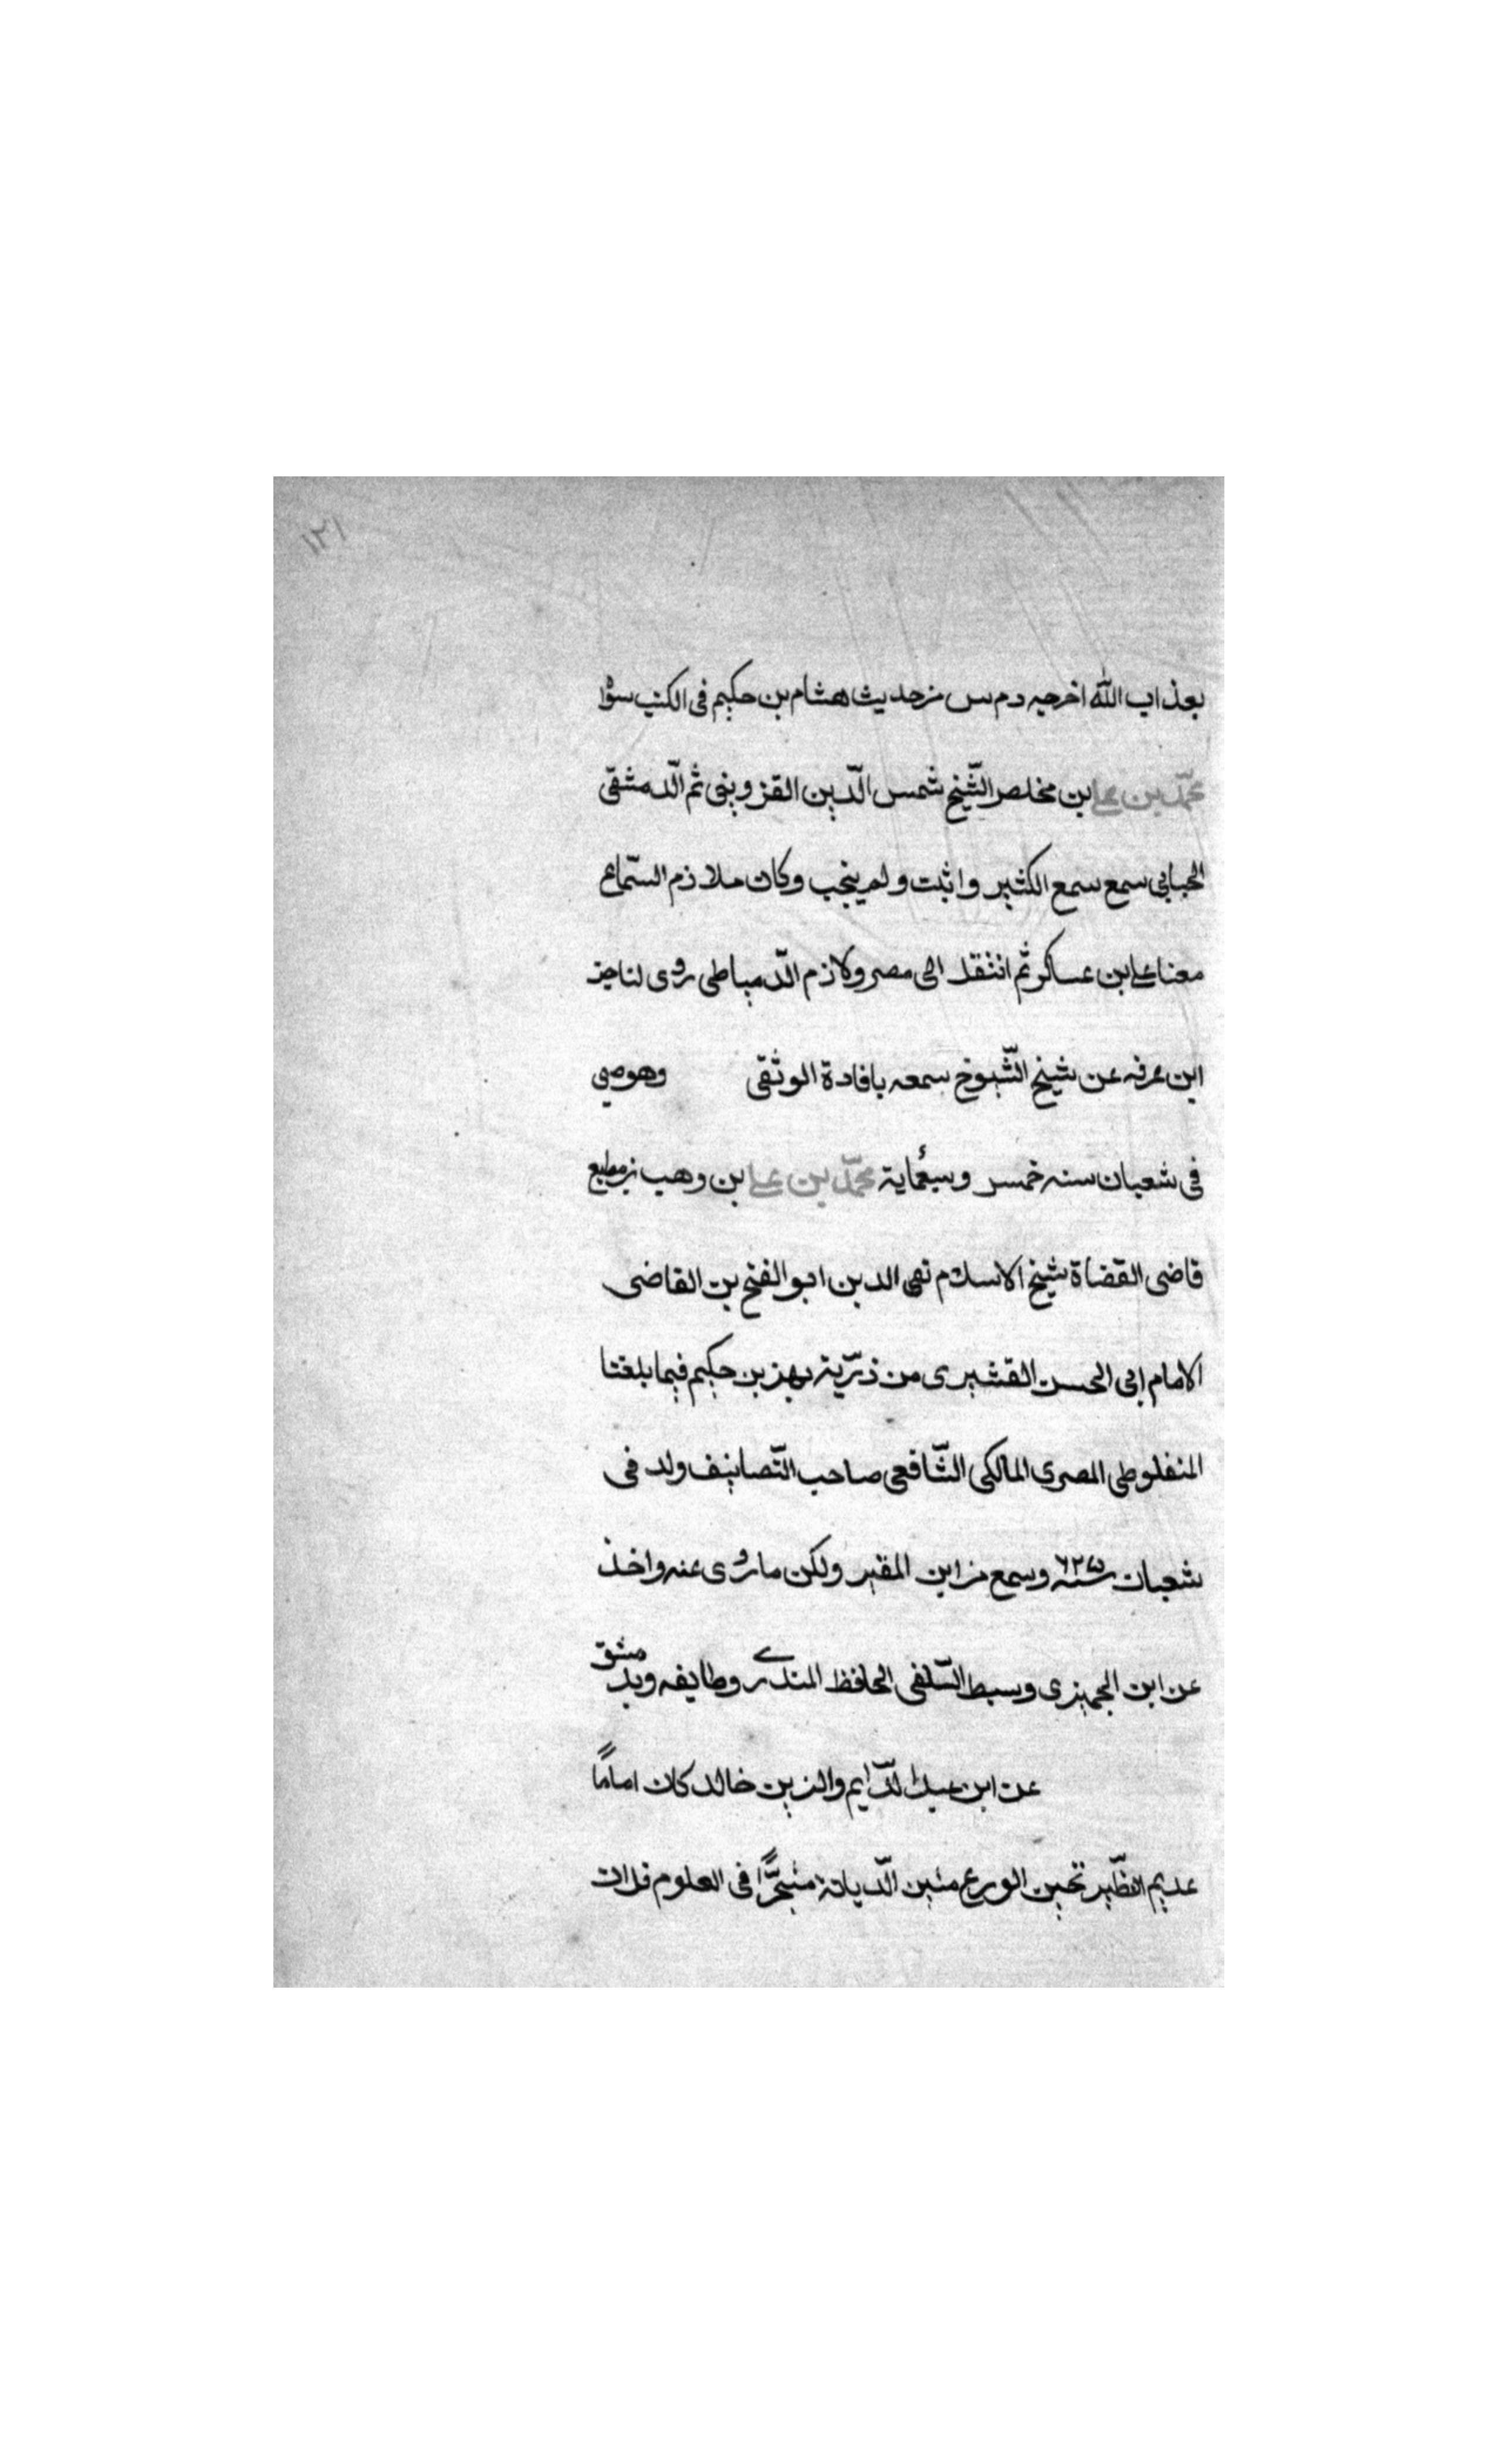 ١٢١
بعذاب الله اخرجه د م س من حديث هشام بن حكيم فى الكتب سوا
محمّد بن على ابن مخلص الشّيخ شمس الدّين القزوينى ثم الدّمشقى
سمع سمع الكثير واثبت ولم ينجب وكان ملازم السّماع
معنا على ابن عساكر ثم انتقل الى مصر ولازم الدّمياطى روى لنا جز
ابن عرفه عن شيخ الشّيوخ سمعه بافادة الوثقى وهو صبى
فى شعبان سنه خمس وسبعماية محمّد بن على بن وهب بن مطيع
قاضى القضاة شيخ الاسلام تقى الدين ابو الفتح بن القاضى
الامام ابى الحسن القشيرى من ذرّية بهز بن حكيم فيما بلغنا
المنفلوطى المصرى المالكى الشّافعى صاحب التّصانيف ولد فى
شعبان سنة ٦٢٥ وسمع من ابن المقير ولكن ما روى عنه واخذ
عن ابن الجميزى وسبط السّلفى الحافظ المنذرى وطايفه وبدمشق
عن ابن عبد الدّايم والزين خالد كان اماماً
عديم النظّير ثخين الورع متين الدّيانة متبحّراً فى العلوم قل ان